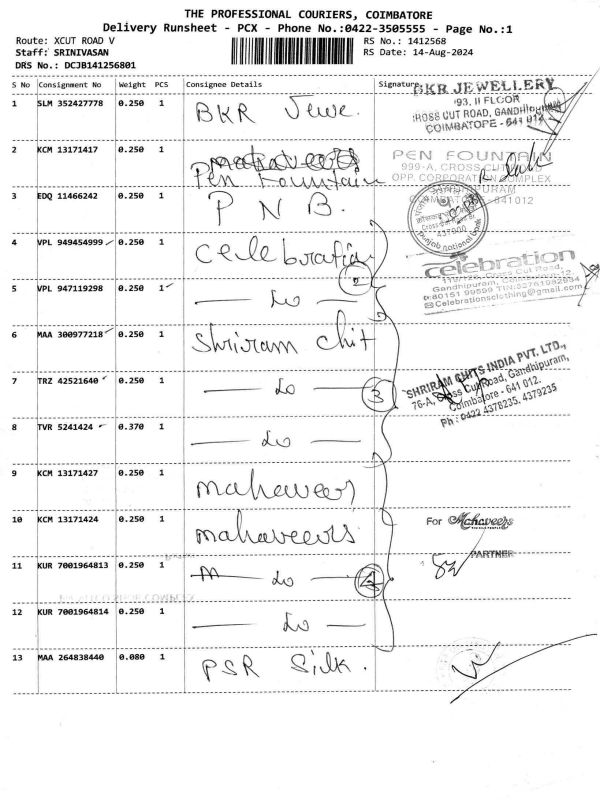 THE PROFESSIONAL COURIERS, COIMBATORE
Delivery Runsheet - PCX - Phone No.:0422-3505555 - Page No.:1
Route: XCUT ROAD V RS No.: 1412568
Staff: SRINIVASAN RS Date: 14-Aug-2024
DRS No.: DCJB141256801
S No Consignment No Weight PCS Consignee Details Signature
BKR JEWELLERY
1 SLM 352427778 0.250 1 BKR Jewe.
93, II FLOOR
CROSS CUT ROAD, GANDHIPURAM
COIMBATORE - 641 012
2 KCM 13171417 0.250 1 Pen Fountain
PEN FOUNTAIN
999-A, CROSS CUT ROAD
OPP. CORPORATION COMPLEX
GANDHIPURAM
COIMBATORE - 641012
3 EDQ 11466242 0.250 1 P N B.
437900
punjab national bank
4 VPL 949454999 0.250 1 Celebration
celebration
Cross Cut Road,
Gandhipuram, Coimbatore-12,
Celebrationsclothing@gmail.com
2
5 VPL 947119298 0.250 1 — Do —
6 MAA 300977218 0.250 1 Shriram Chit
SHRIRAM CHITS INDIA PVT. LTD.,
76-A, Cross Cut Road, Gandhipuram,
Coimbatore - 641 012.
Ph : 0422 4378235, 4379235
7 TRZ 42521640 0.250 1 — Do — 3
8 TVR 5241424 0.370 1 — Do —
9 KCM 13171427 0.250 1 Mahaveer
10 KCM 13171424 0.250 1 mahaveers
For Mahaveers
PARTNER
11 KUR 7001964813 0.250 1 — Do — 4
12 KUR 7001964814 0.250 1 — Do —
13 MAA 264838440 0.080 1 PSR Silk.